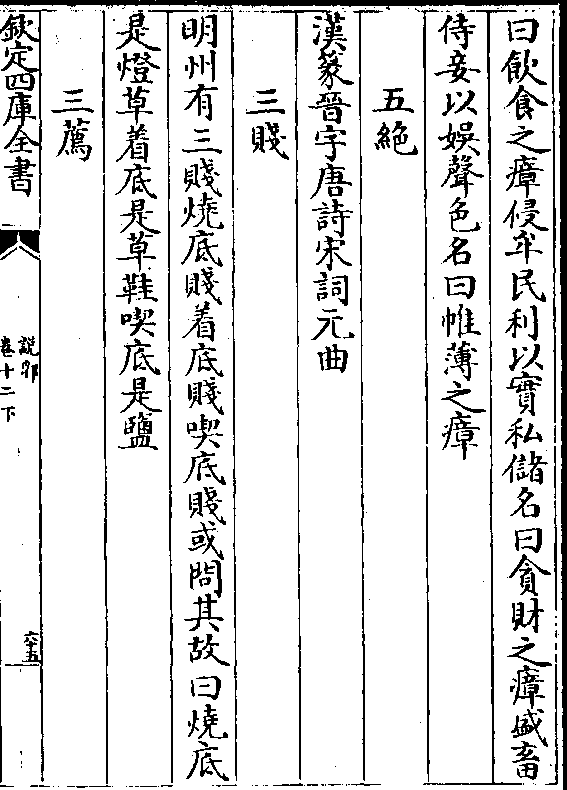 曰飲食之瘴侵牟民利以實私儲名曰貪財之瘴盛畜
侍妾以娯聲色名曰帷薄之瘴
五絶
漢篆晉字唐詩宋詞元曲
三賤
明州有三賤燒底賤着底賤喫底賤或問其故曰燒底
是燈草着底是草鞋喫底是鹽
三薦
欽定四庫全書
説郛
卷十二下
六十五